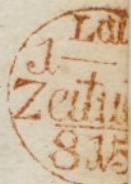 La
1
Zeitu
815